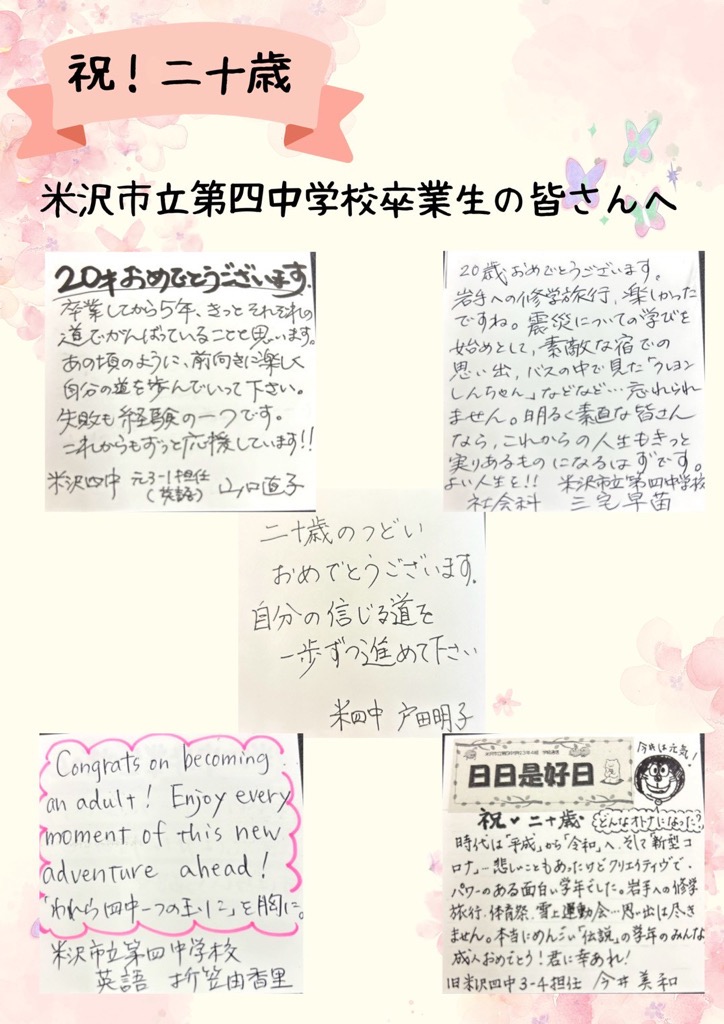 祝！二十歳
米沢市立第四中学校卒業生の皆さんへ
20才おめでとうございます。
卒業してから5年、きっとそれぞれの
道でがんばっていることと思います。
あの頃のように、前向きに楽しく
自分の道を歩んでいって下さい。
失敗も経験の一つです。
これからもずっと応援しています!!
米沢四中 元3-1担任
(英語) 山口直子
20歳おめでとうございます。
岩手への修学旅行、楽しかった
ですね。震災についての学びを
始めとして、素敵な宿での
思い出、バスの中で見た「クレヨン
しんちゃん」などなど…忘れられ
ません。明るく素直な皆さん
なら、これからの人生もきっと
実りあるものになるはずです。
よい人生を!! 米沢市立第四中学校
社会科 三宅早苗
二十歳のつどい
おめでとうございます。
自分の信じる道を
一歩ずつ進めて下さい
米四中 戸田明子
Congrats on becoming
an adult! Enjoy every
moment of this new
adventure ahead!
「われら四中一つの玉りこ」を胸に。
米沢市立第四中学校
英語 折笠由香里
日日是好日
今井は元気!
祝♥二十歳 どんなオトナになった?
時代は「平成」から「令和」へ、そして「新型コ
ロナ」…悲しいこともあったけどクリエイティヴで、
パワーのある面白い学年でした。岩手への修学
旅行、体育祭、雪上運動会…思い出は尽き
ません。本当にめんこい「伝説」の学年のみんな
成人おめでとう！君に幸あれ！
旧米沢四中3-4担任 今井美和